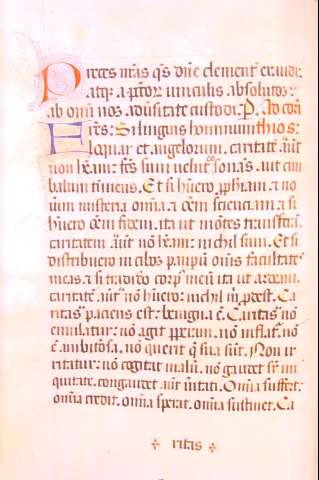 Preces nr̃as qs̃ dñe clement̃ exaudi:
atq; a pctõr vinculis absolutos:
ab om̃i nos adũsitate custodi. P. Ad corı̃
Fr̃es: Si linguis hominum thios:
loquar et angelorum, caritatẽ aũt
non hẽam: fc̃s sum velut es sonãs, aut cim
balum tiniens. Et si hũero ꝓphiam ⁊ no
uim misteria om̃ia ⁊ c̃em scienciam ⁊ si
hũero c̃em fidem, ita ut mõtes transferã,
caritatem aũt nõ hẽam: nichil sum. Et si
distribuero in cibos paupũ om̃s facultates
meas, ⁊ si tradidẽo corp̃ meũ ita ut ardeam,
caritatẽ aũt nõ hũero: nichil m̃ pdest. Ca
ritas paciens est: benigna ẽ. Caritas nõ
emulatur: nõ agit pperam. nõ inflat̃. nõ
ẽ ambiciosa. nõ querit q̃ sua sũt. Non ir
ritatur: nõ cogitat malũ. nõ gaudet sr̃ ini
quitate. congaudet aũt ũitati. Om̃ia suffert.
om̃ia credit. om̃ia sperat. om̃ia sustinet. Ca
ritas